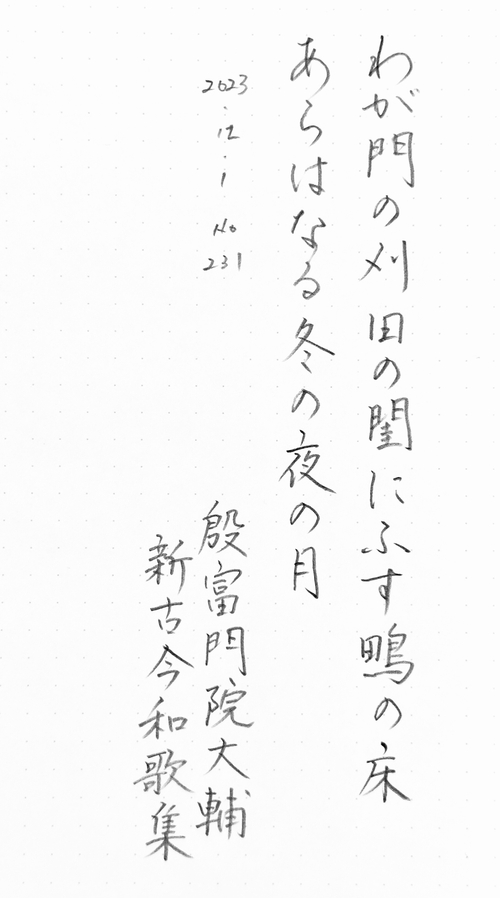 わが門の刈田の閨にふす鴫の床
あらはなる冬の夜の月
2023.12.1 No 231
殷富門院大輔
新古今和歌集